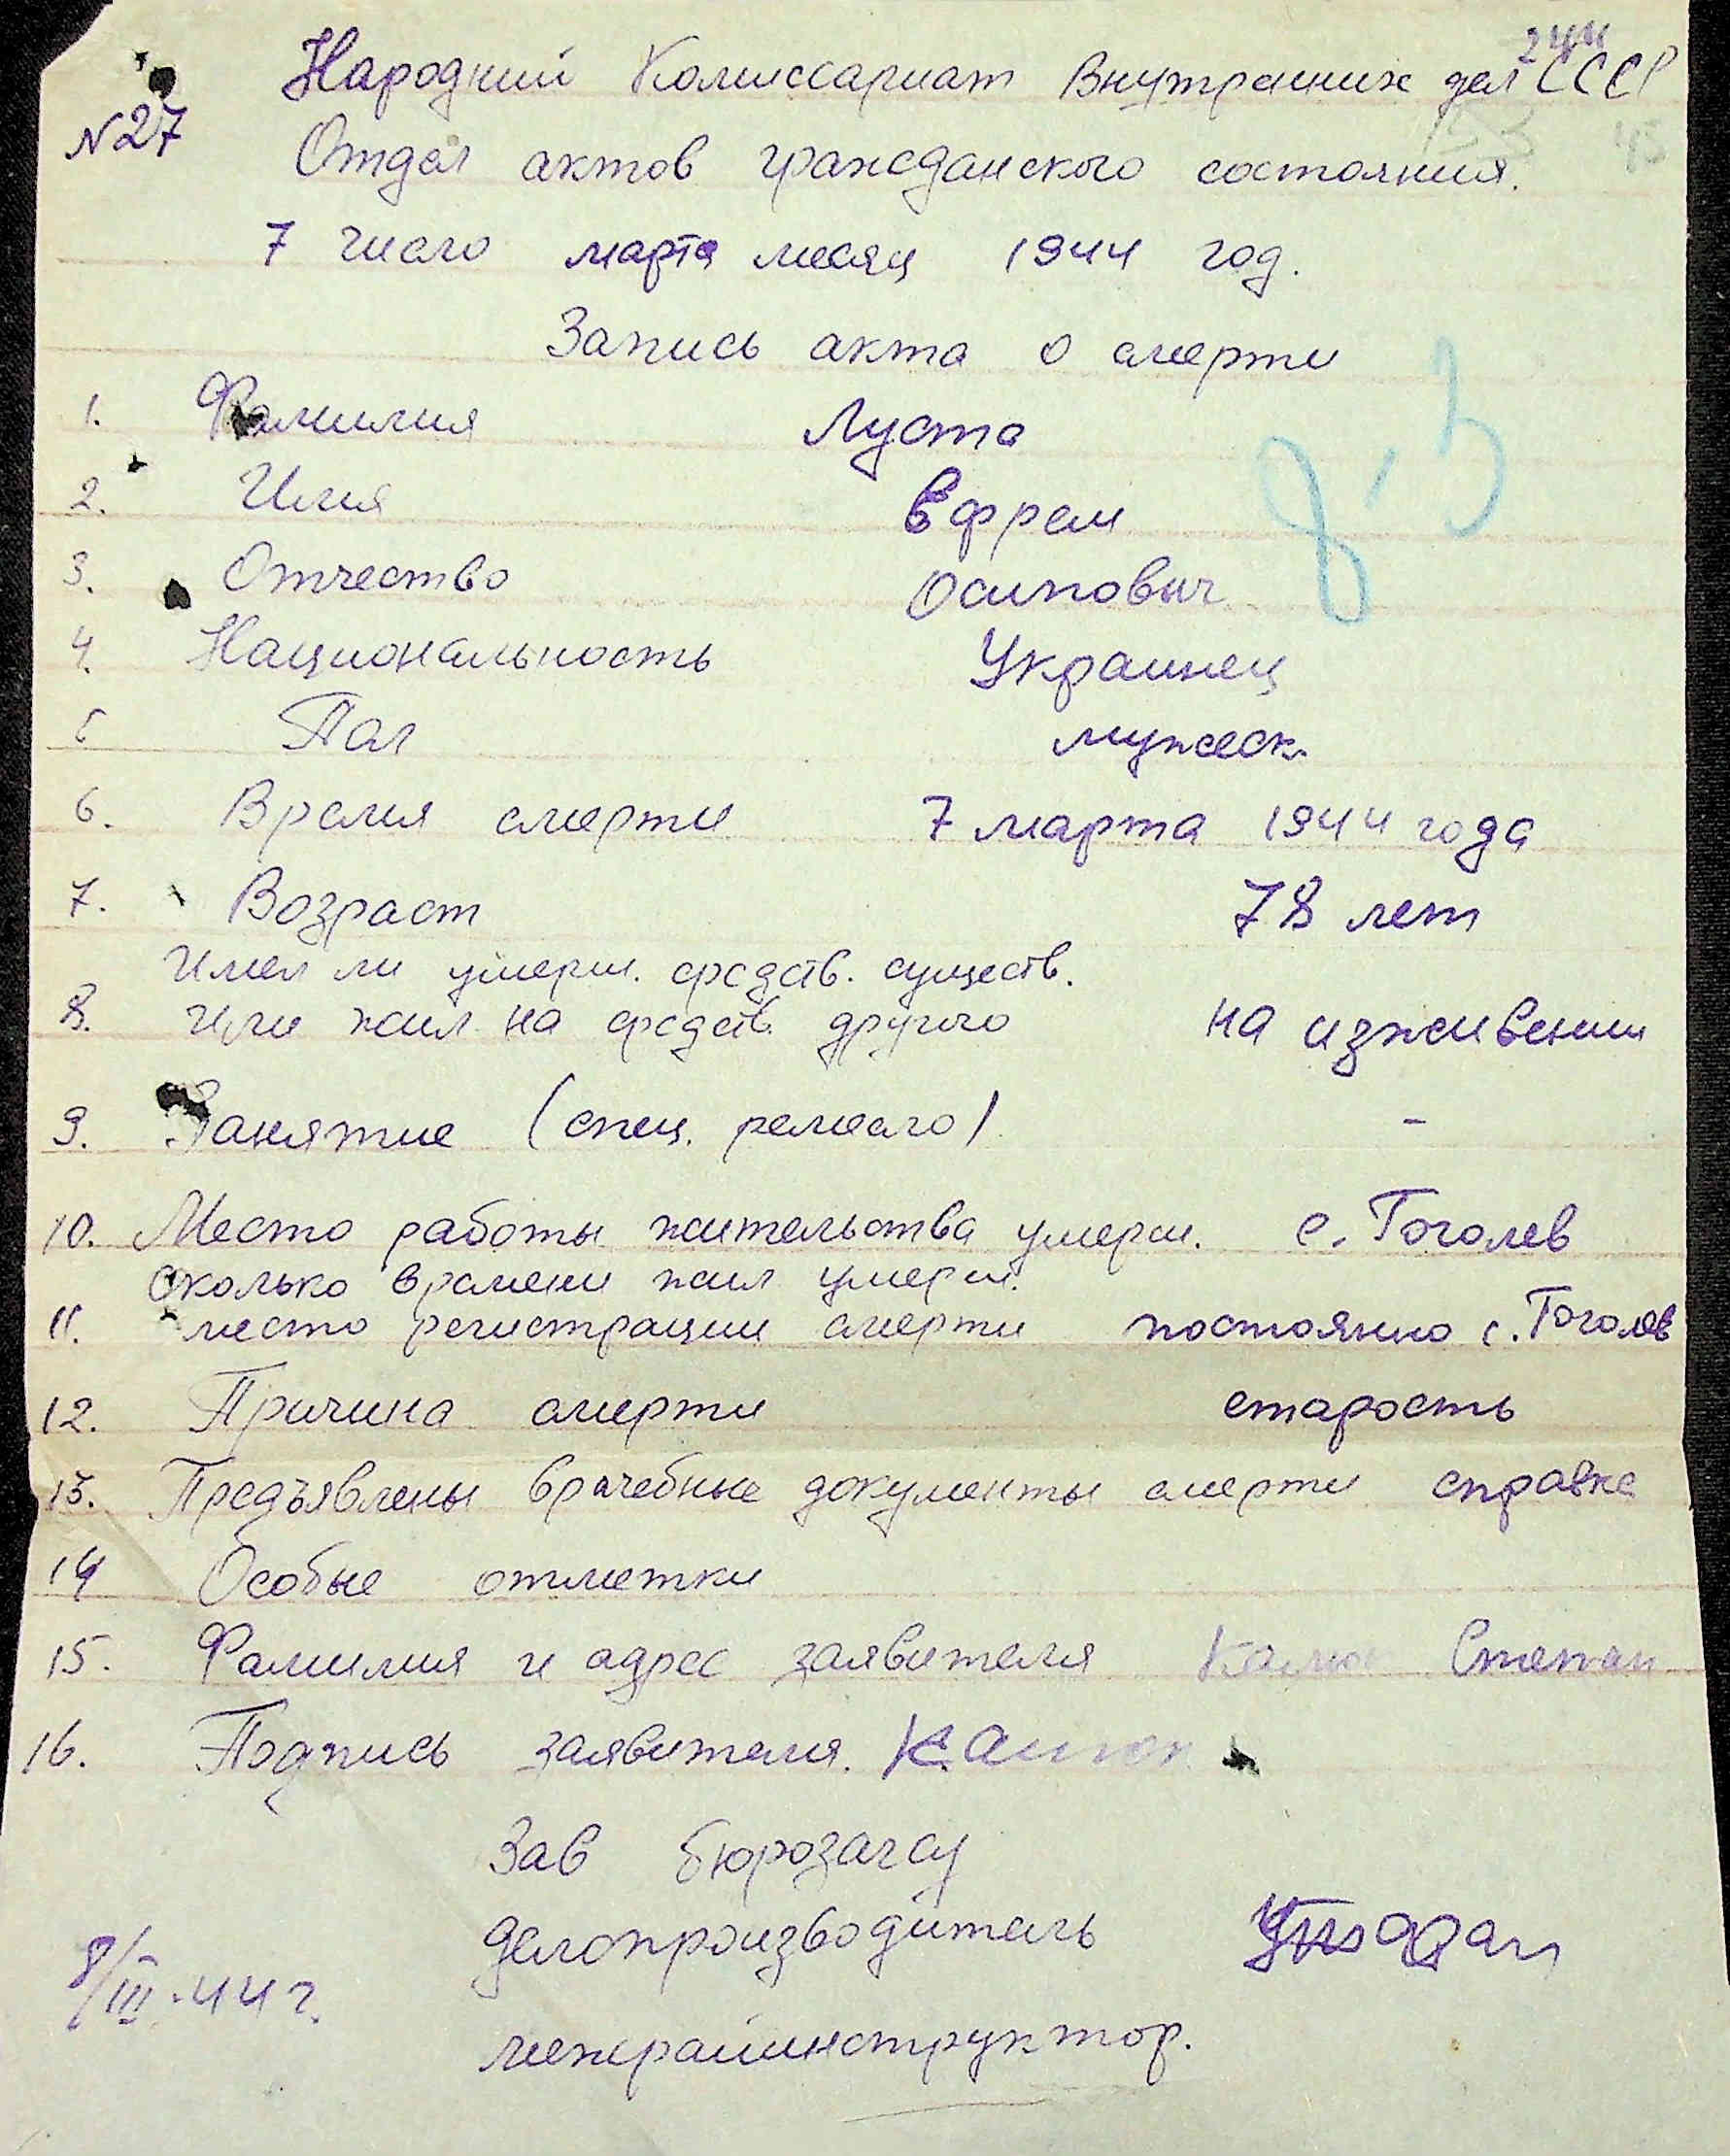 Народний Комиссариат Внутренних дел СССР
N 27
Отдел актов гражданского состояния.
7 число марта месяц 1944 год.
Запись акта о смерти
1. Фамилия Луста
2. Имя Ефрем
3. Отчество Осипович
4. Национальность Украинец
5 Пол мужеск.
6. Время смерти 7 марта 1944 года
7. Возраст 78 лет
Имел ли умерш. средств. существ.
8. Или жил на средств. другого на изживении
9. Занятие (спец. ремесло) -
10. Место работы жительства умерш. с. Гоголев
Сколько времени жил умерш.
11. место регистрации смерти постоянно с. Гоголев
12. Причина смерти старость
13. Предъявлены врачебные документы смерти справка
14 Особые отметки
15. Фамилия и адрес заявителя Степан
16. Подпись заявителя.
Зав бюрозагсу
делопроизводитель
8/III-44 г.
межрайинструктор.